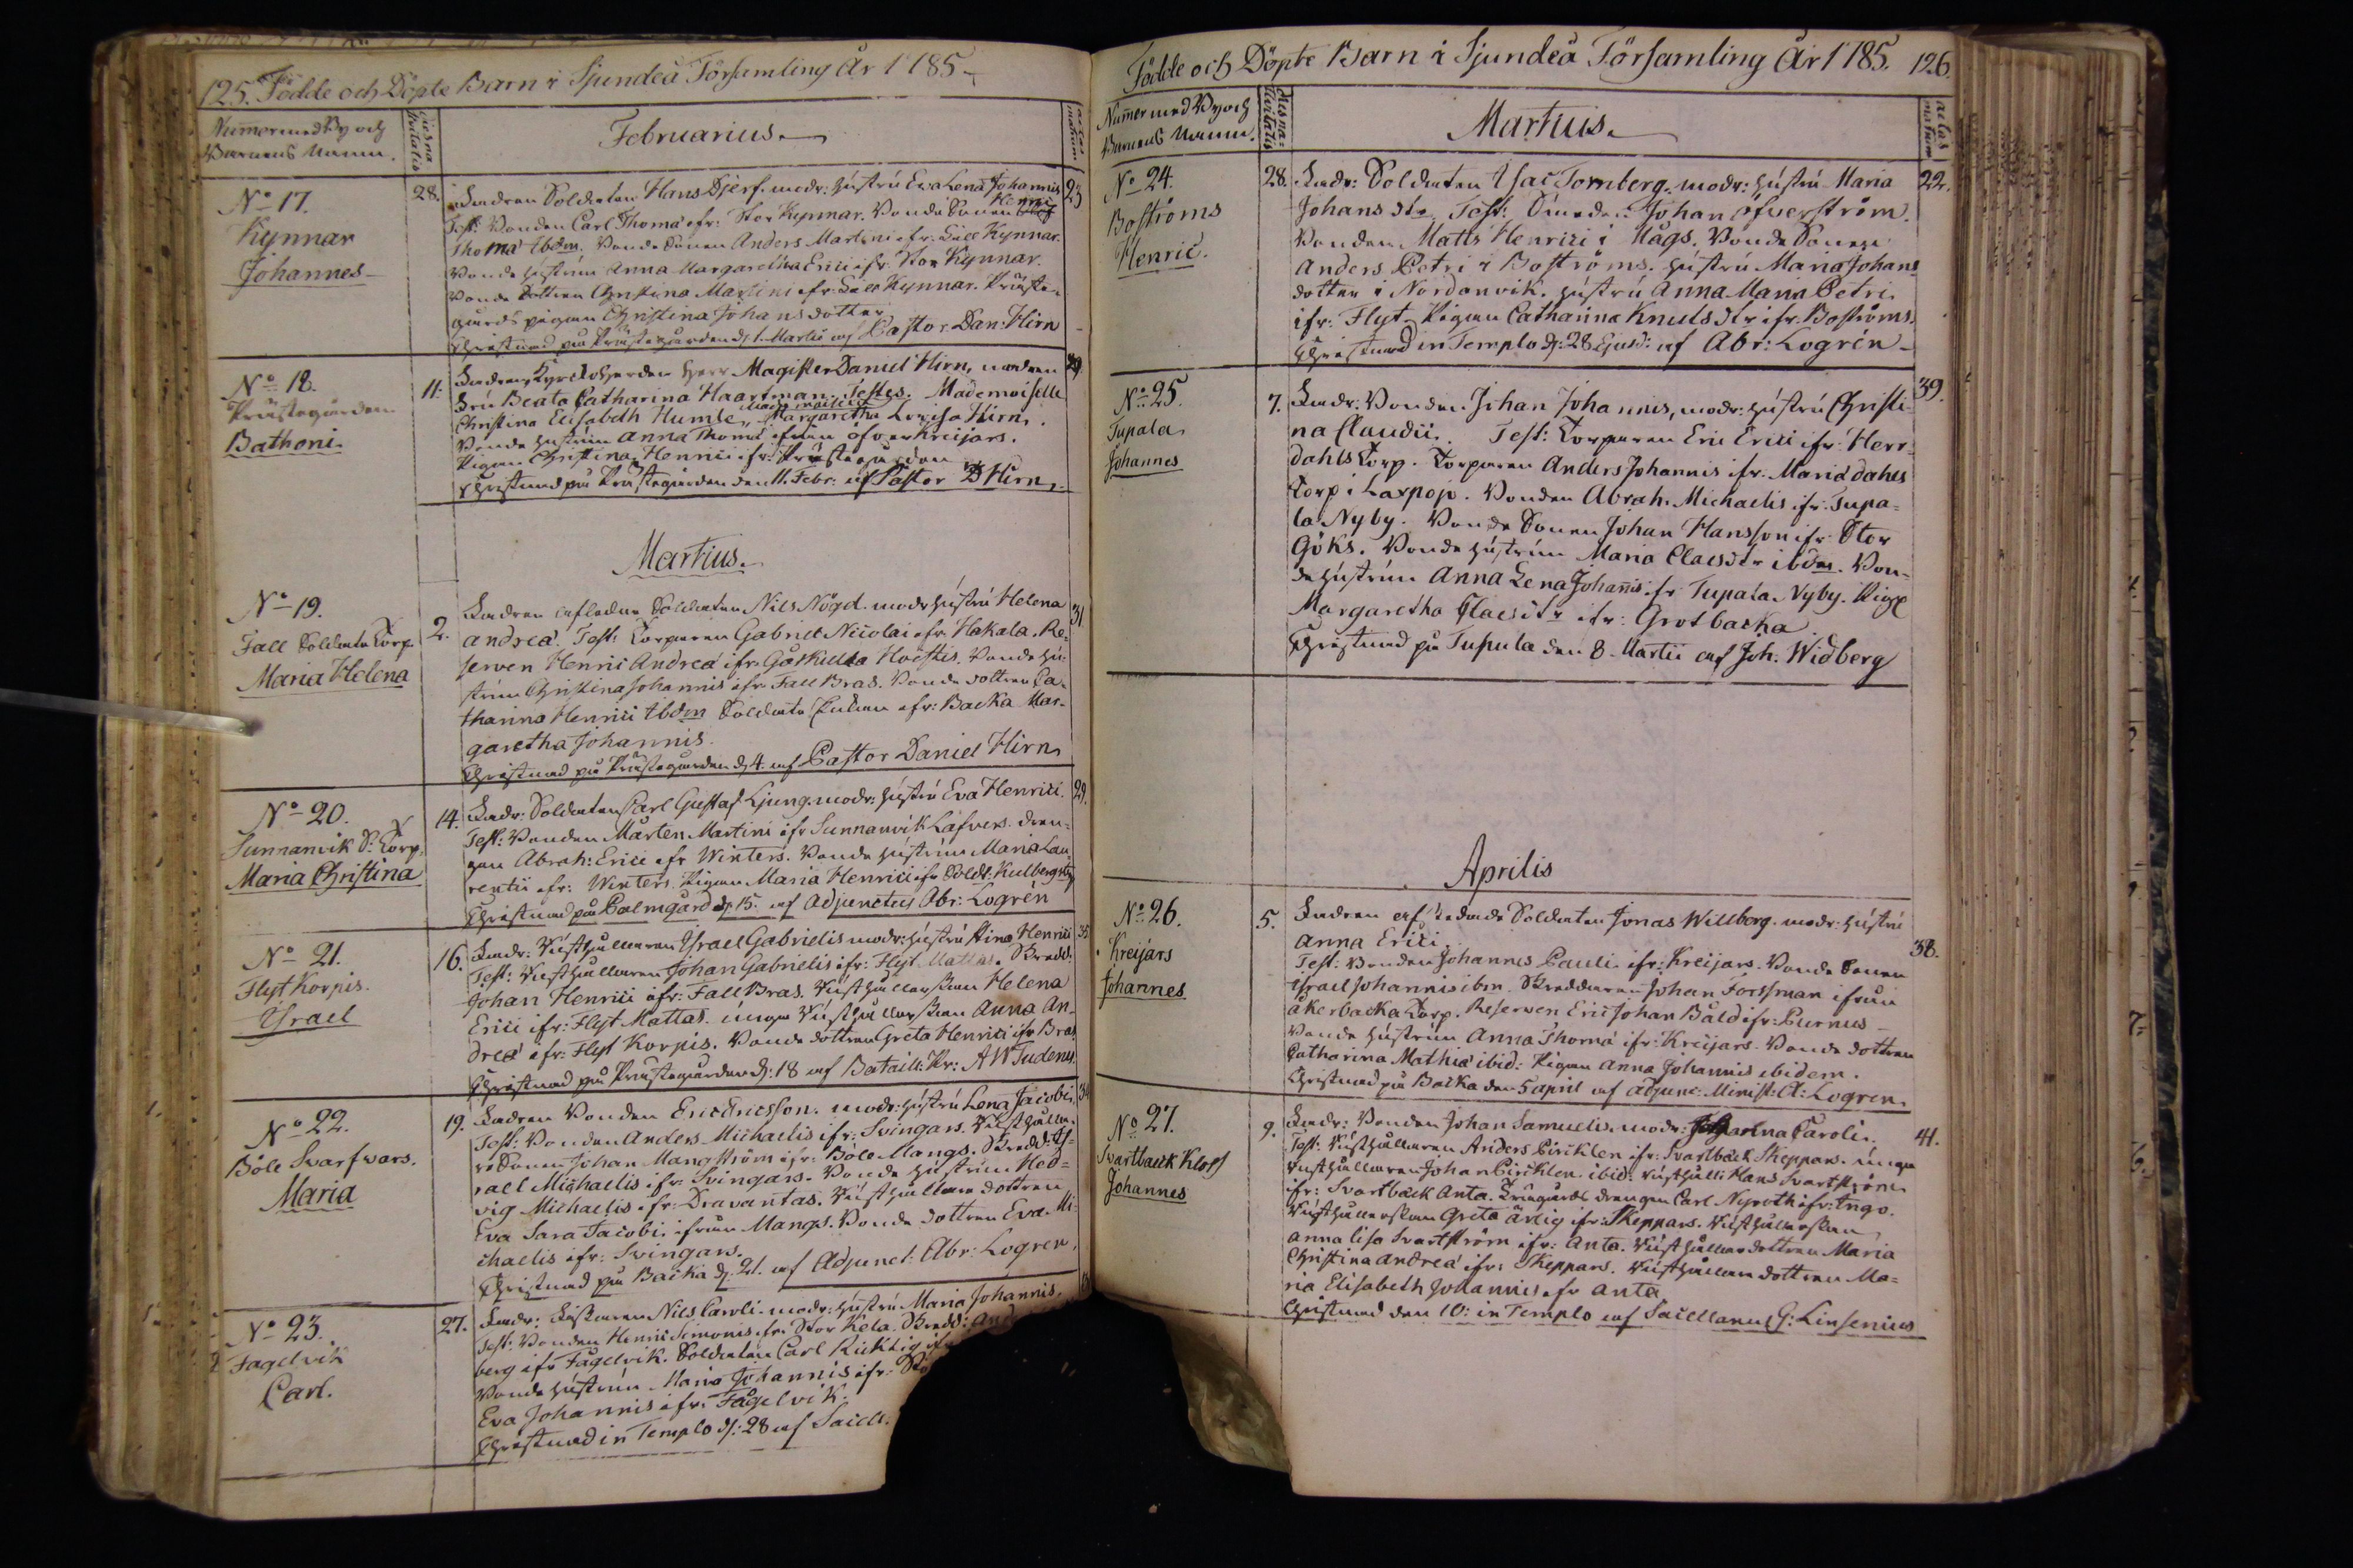 125. Födde och Döpte Barn i Sjundeå Församling År 1785
Num̄er med By och
Barnens Namn.
dies na-
talitatis
Februarius.
aetas
matrum
No 17.
Kynnar
Johannes
28.
Fadren Soldaten Hans Djerf. modr: hustru Eva Lena Johannis
23
Test: Bonden Carl Thomæ ifr: Stor Kynnar. Bonde Sonen Henric
Thomæ Ibdm. Bonde Sonen Anders Martini ifr: Lill Kynnar.
Bonde hustrun Anna Margaretha Erici ifr. Stor Kynnar.
Bonde dottren Christina Martini ifr: Lill Kynnar. Präste-
gårds pigan Christina Johans dotter
Christnad på Prästegården d. 1. Martii af Pastor Dan: Hirn
No 18.
Prästegården
Bathoni.
11.
Fadren, Kyrckoherden Herr Magister Daniel Hirn, modren
29
Fru Beata Catharina Haartman. Testes. Mademoiselle
Christina Elisabeth Humle, Mademoiselle Margaretha Lovisa Hirn.
Bonde hustrun Anna Thomæ ifrån öfver Kreijars.
Pigan Christina Henrici ifr: Prästegården
Christnad på Prästegården den 11. Febr: af Pastor D Hirn.
Martius.
No 19.
Fall Soldate Torp
Maria Helena
2.
Fadren aflednе Soldaten Nils Nögd. modr hustru Helena
31
Andreæ. Test: Torparen Gabriel Nicolai ifr. Hakala. Re-
serven Henric Andreæ ifr. Gårskulla. Bonde hu-
strun Christina Johannis ifr. Fall Bras. Bonde dottren Ca-
tharina Henrici Ibdm Soldate Enkan ifr: Backa Mar-
garetha Johannis.
Christnad på Prästegården d. 4. af Pastor Daniel Hirn
No 20.
Sunnanvik S: Torp.
Maria Christina
14.
Fadr: Soldaten Carl Gustaf Ljung. modr: hustru Eva Henrici.
29.
Test: Bonden Mårten Martini ifr Sunnanvik Lafvers. dren-
gen Abrah: Erici ifr Winters. Bonde hustrun Maria Lau-
rentii ifr: Winters. Pigan Maria Henrici ifr Soldt: Kulbergs
Christnad på Palmgård d. 15. af Adjunctus Abr: Logrén
No 21.
Flyt Korpis.
Israel
16.
Fadr: Rusthållaren Israel Gabrielis modr: hustru Stina Henrici
35
Test: Rusthållaren Johan Gabrielis ifr: Flyt Mattas. Skredd:
Johan Henrici ifr: Fall Bras. Rusthållarskan Helena
Erici ifr: Flyt Mattas. unga Rusthållarskan Anna An-
dreæ ifr: Flyt Korpis. Bonde dottren Greta Henrici ifr Bras
Christnad på Prästegården d: 18 af Bataill: Pr: A W Tudenus
No 22.
Böle Svarfvars.
Maria
19.
Fadren Bonden Eric Ericsson. modr: hustru Lena Jacobi.
34
Test: Bonden Anders Michaelis ifr: Svingars. Rusthålla-
re Sonen Johan Mangström ifr: Böle Mangs. Skredd: Is-
rael Michaelis ifr: Svingars. Bonde hustrun Hed-
vig Michaelis ifr: Dravantas. Rusthållare dottren
Eva Sara Jacobi ifrån Mangs. Bonde dottren Eva Mi-
chaelis ifr: Svingars.
Christnad på Backa d: 21. af Adjunct: Abr: Logren.
No 23.
Fagelvik
Carl.
27.
Fadr: Fiskaren Nils Caroli. modr: hustru Maria Johannis.
Test: Bonden Henric Simonis ifr. Stor Kela. Skredd: And
berg ifr Fågelvik. Soldaten Carl Ricktig ifr
Bonde hustrun Maria Johannis ifr: Sto
Eva Johannis ifr. Fågelvik.
Christnad in Templo d: 28 af Sacell.
Födde och Döpte Barn i Sjundeå Församling År 1785. 126.
Num̄er med By och
Barnens Namn.
dies na-
talitatis
Martius.
aetas
matrum
No 24.
Boströms
Henric.
28.
Fadr: Soldaten Isac Tornberg. modr: hustru Maria
22.
Johans dtr. Test: Johan öfverström.
Bonden Matts Henrici i Mågs. Bonde Sonen
Anders Petri i Boströms. hustru Maria Johans
dotter i Nordanvik. hustru Anna Maria Petri
ifr: Flyt. Pigan Catharina Knuts dtr ifr. Boströms.
Christnad in Templo d: 28 Ejusd: af Abr: Logrén
No 25.
Tupala
Johannes
7.
Fadr: Bonden Johan Johannis, modr: hustru Christi-
39.
na Claudii. Test: Torparen Eric Erici ifr: Herr-
dahls Torp. Torparen Anders Johannis ifr. Mariæ dahls
Torp i Larpojo. Bonden Abrah. Michaelis ifr. Tupa-
la Nyby. Bonde Sonen Johan Hansson ifr: Stor
Göks. Bonde hustrun Maria Claes dtr ibdm. Bon-
de hustrun Anna Lena Johannis ifr Tupala Nyby. Piga
Margaretha Claes dtr ifr: Grotbacka
Christnad på Tupala den 8 Martii af Joh. Widberg
Aprilis
No 26.
Kreijars
Johannes
5.
Fadren afskedade Soldaten Jonas Willborg. modr: hustru
Anna Erici.
38.
Test: Bonden Johannes Pauli ifr: Kreijars. Bonde Sonen
Israel Johannis ibm. Skreddaren Johan Forssman ifrån
åkerbacka Torp. Reserven Eric Johan Båld ifr: Purnus
Bonde hustrun Anna Thomæ ifr: Kreijars. Bonde dottren
Catharina Mathiæ ibid: Pigan Anna Johannis ibidem.
Christnad på Backa den 5 april af adjunc: Minist: A: Logren.
No 27.
Svartbäck Kloss
Johannes
9.
Fadr: Bonden Johan Samuelis. modr: Caroli.
41.
Test: Rusthållaren Anders Pircklen ifr: Svartbäck Skeppars. unga
Rusthållaren Johan Pircklen. ibid: rusthåll: Hans Svartström
ifr: Svartbäck Anta. Trägårds drengen Carl Nyroth ifr: Ingo.
Rusthållerskan Greta ärlig ifr: Skeppars. Rusthållerskan
Anna Lisa Svartström ifr: Anta. Rusthållare dottren Maria
Christina Andreæ ifr: Skeppars. Rusthållare dottren Ma-
ria Elisabeth Johannis ifr Anta
Christnad den 10: in Templo af Sacellanus G: Linsenius